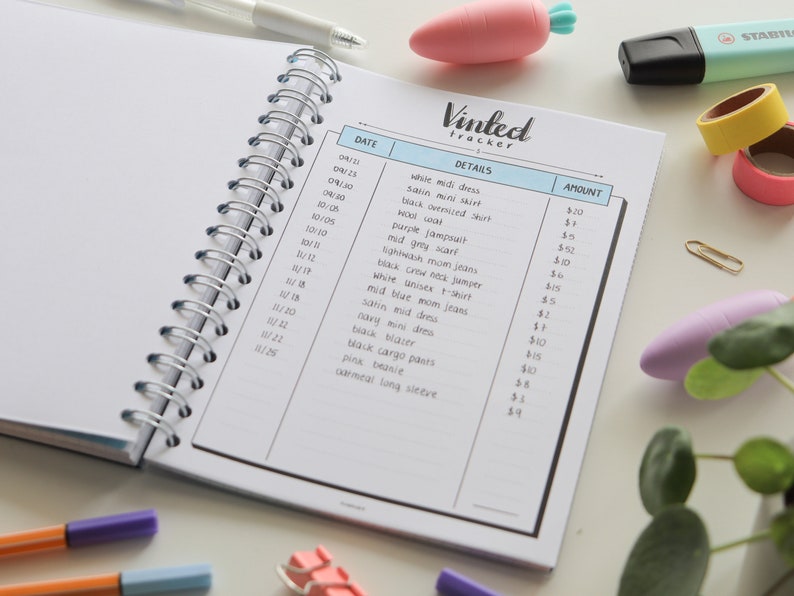 Vinted
tracker
DATE DETAILS AMOUNT
09/21 white midi dress $20
09/23 satin mini skirt $7
09/30 black oversized shirt $5
09/30 wool coat $52
10/03 purple jampsuit $10
10/05 mid grey scarf $6
10/10 lightwash mom jeans $15
10/11 black crew neck jumper $5
11/12 white unisex t-shirt $2
11/17 mid blue mom jeans $7
11/18 satin mid dress $10
11/18 navy mini dress $15
11/20 black blazer $10
11/22 black cargo pants $8
11/22 pink beanie $3
11/25 oatmeal long sleeve $9